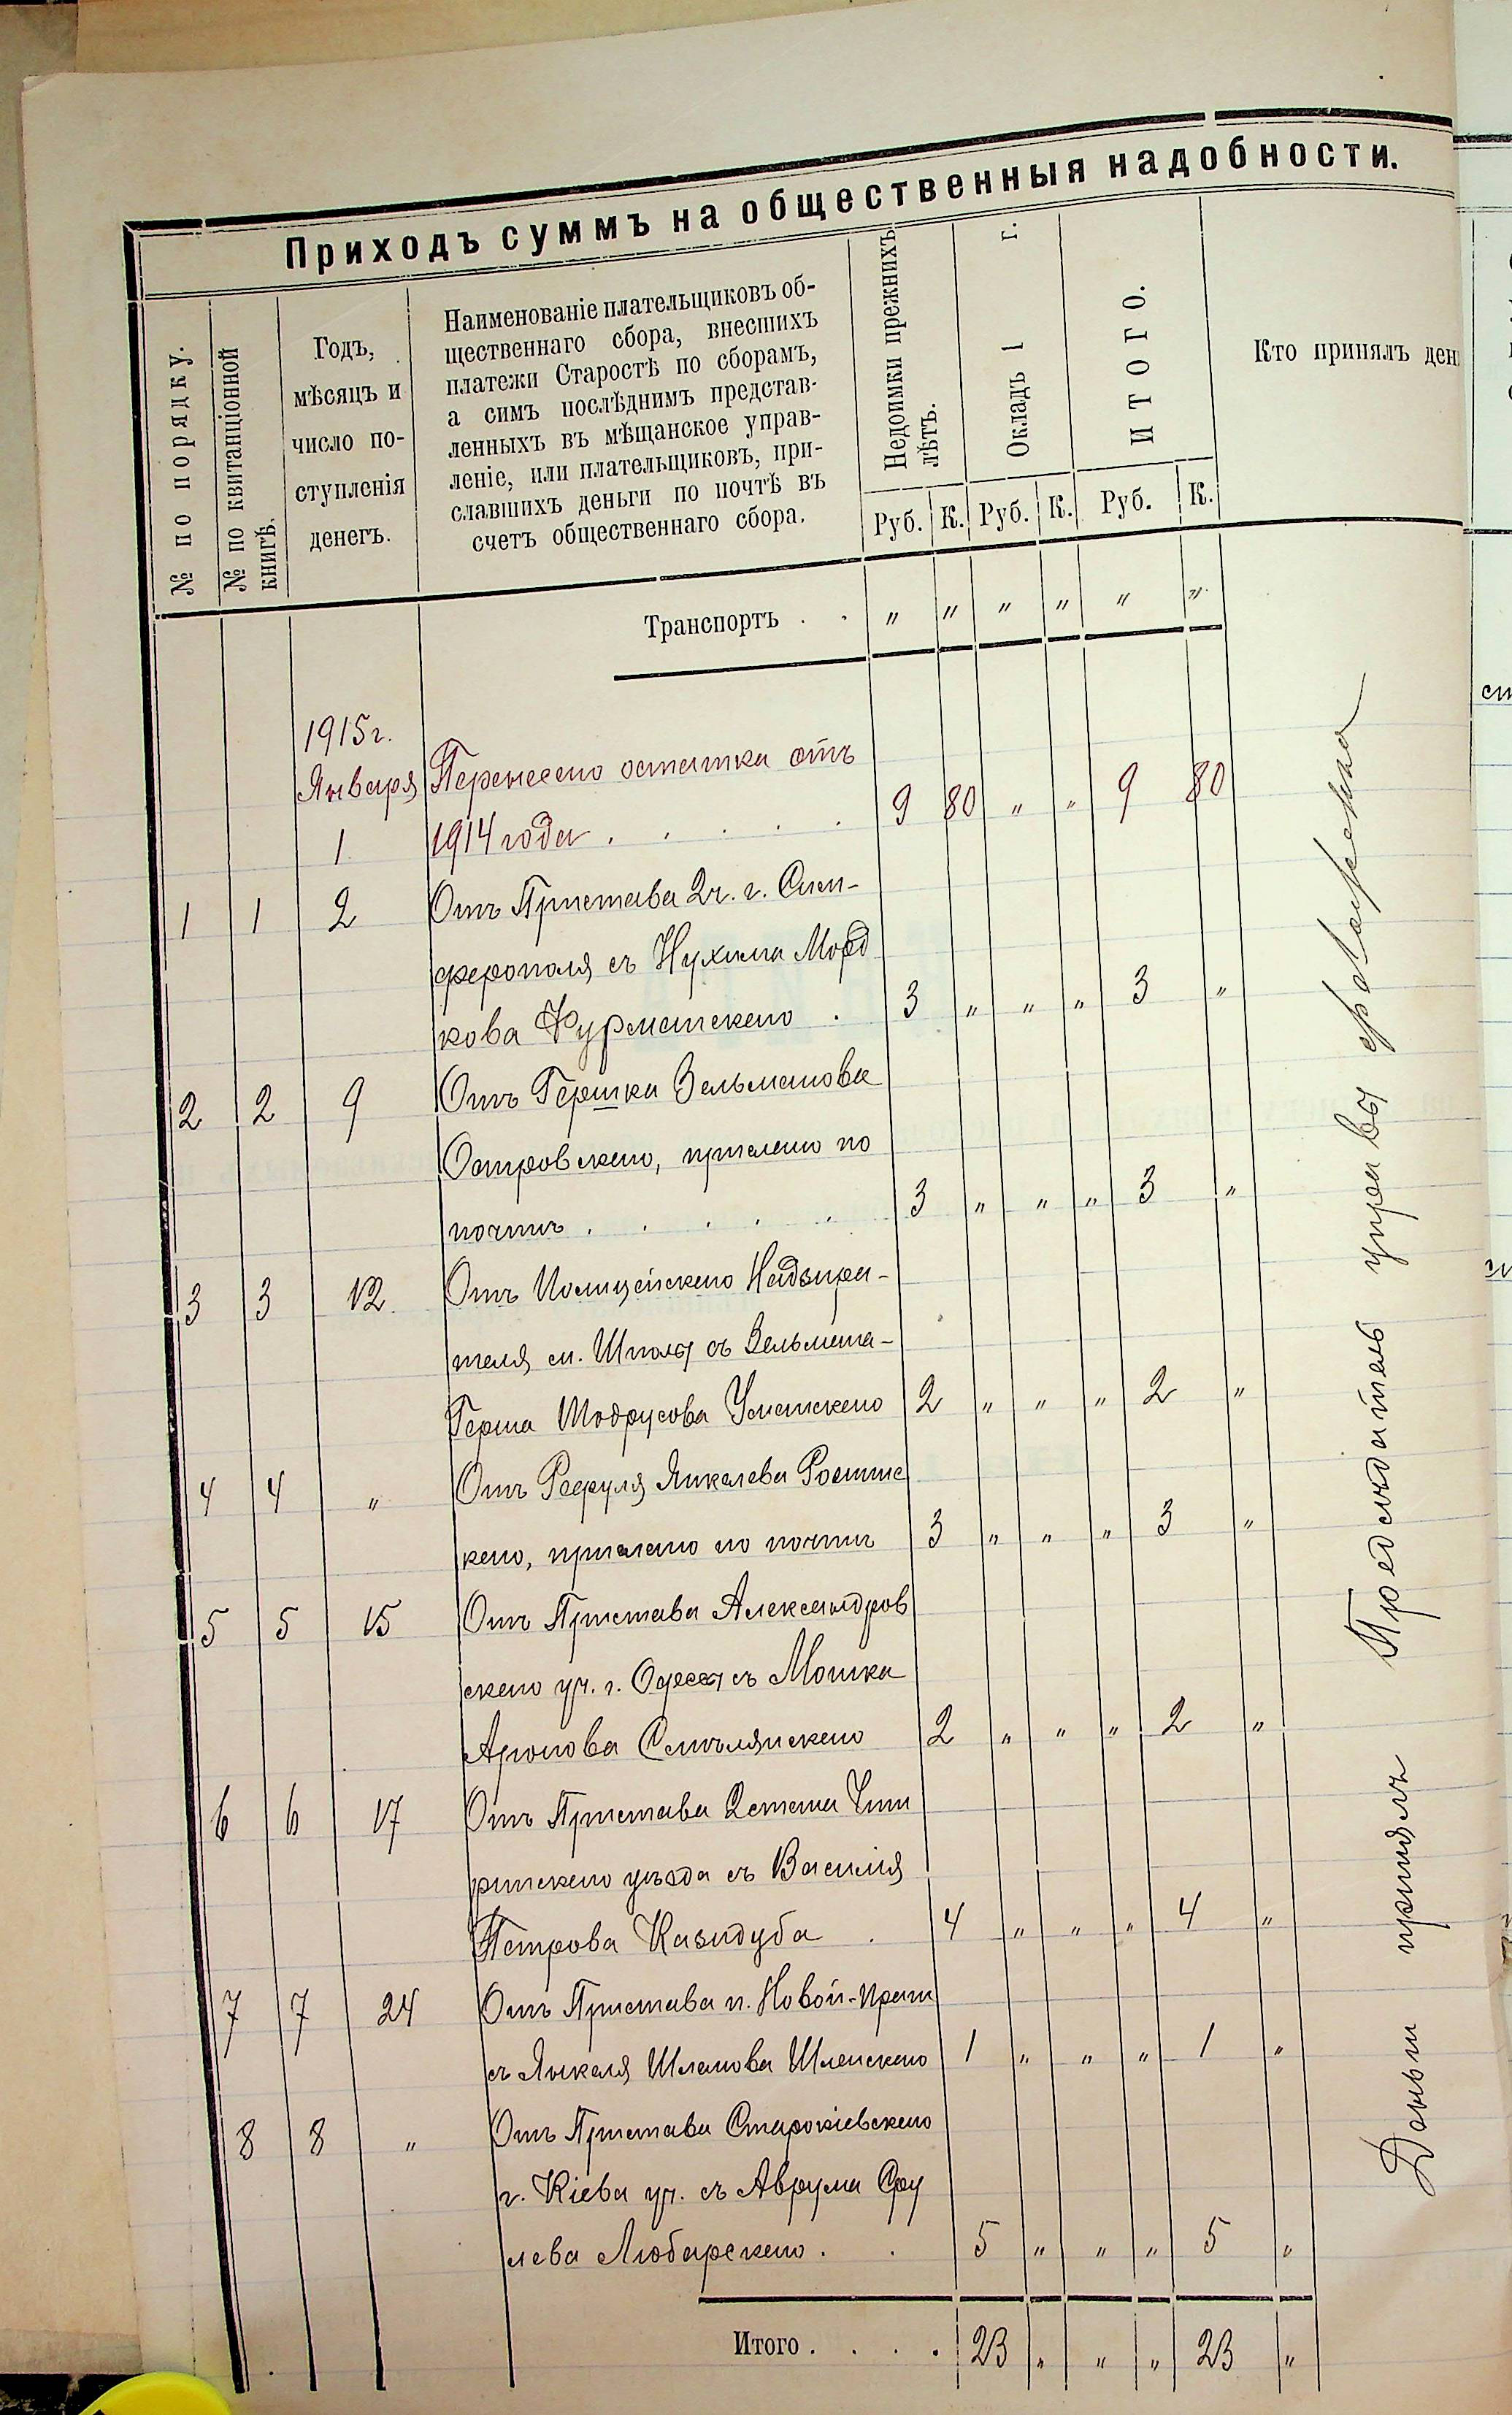 Приходъ суммъ на общественныя надобности.
№ по порядку.
№ по квитанціонной
книгѣ.
Годъ,
мѣсяцъ и
число по-
ступленія
денегъ.
Наименованіе плательщиковъ об-
щественнаго сбора, внесшихъ
платежи Старостѣ по сборамъ,
а симъ послѣднимъ представ-
ленныхъ въ мѣщанское управ-
леніе, или плательщиковъ, при-
славшихъ деньги по почтѣ въ
счетъ общественнаго сбора.
Недоимки прежнихъ
лѣтъ.
Окладъ 1 г.
ИТОГО.
Кто принялъ ден
Руб. К. Руб. К. Руб. К.
Транспортъ . . " " " " " "
1915 г.
Января Перенесено остатка отъ
1 1914 года . . . . . 9 80 " " 9 80
1 1 2 Отъ Пристава 2 ч. г. Сим-
ферополя съ Нухима Морд
кова Фурманскаго . 3 " " " 3 "
2 2 9 Отъ Гершка Зельманова
Островскаго, прислано по
почтѣ . . . . . 3 " " " 3 "
3 3 12. Отъ Полицейскаго Надзира-
теля м. Шполы съ Зельмана-
Герша Уманскаго 2 " " " 2 "
4 4 " Отъ Рефуля Янкелева
скаго, прислано по почтѣ 3 " " " 3 "
5 5 15 Отъ Пристава Александров
скаго уч. г. Одессы съ Мошка
Аронова Смѣлянскаго 2 " " " 2 "
6 6 17 Отъ Пристава 2 стана Чиги
ринскаго уѣзда съ Василія
Петрова Казидуба . 4 " " " 4 "
7 7 24 Отъ Пристава п. Новой-Праги
съ Янкеля Шлемова 1 " " " 1 "
8 8 " Отъ Пристава Старокіевскаго
г. Кіева уч. съ Аврума Сру
лева Любарскаго . . 5 " " " 5 "
Итого . . . . 23 " " " 23 "
Деньги принялъ Предсѣдатель управы